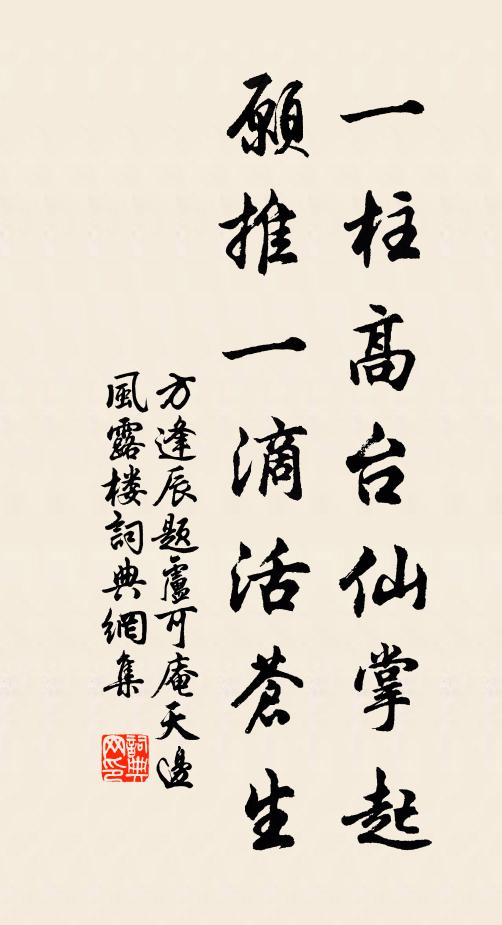 一柱高台仙掌起
願推一滴活蒼生
方逢辰題盧可庵天邊
風露楼詞典網集
詞典
网印